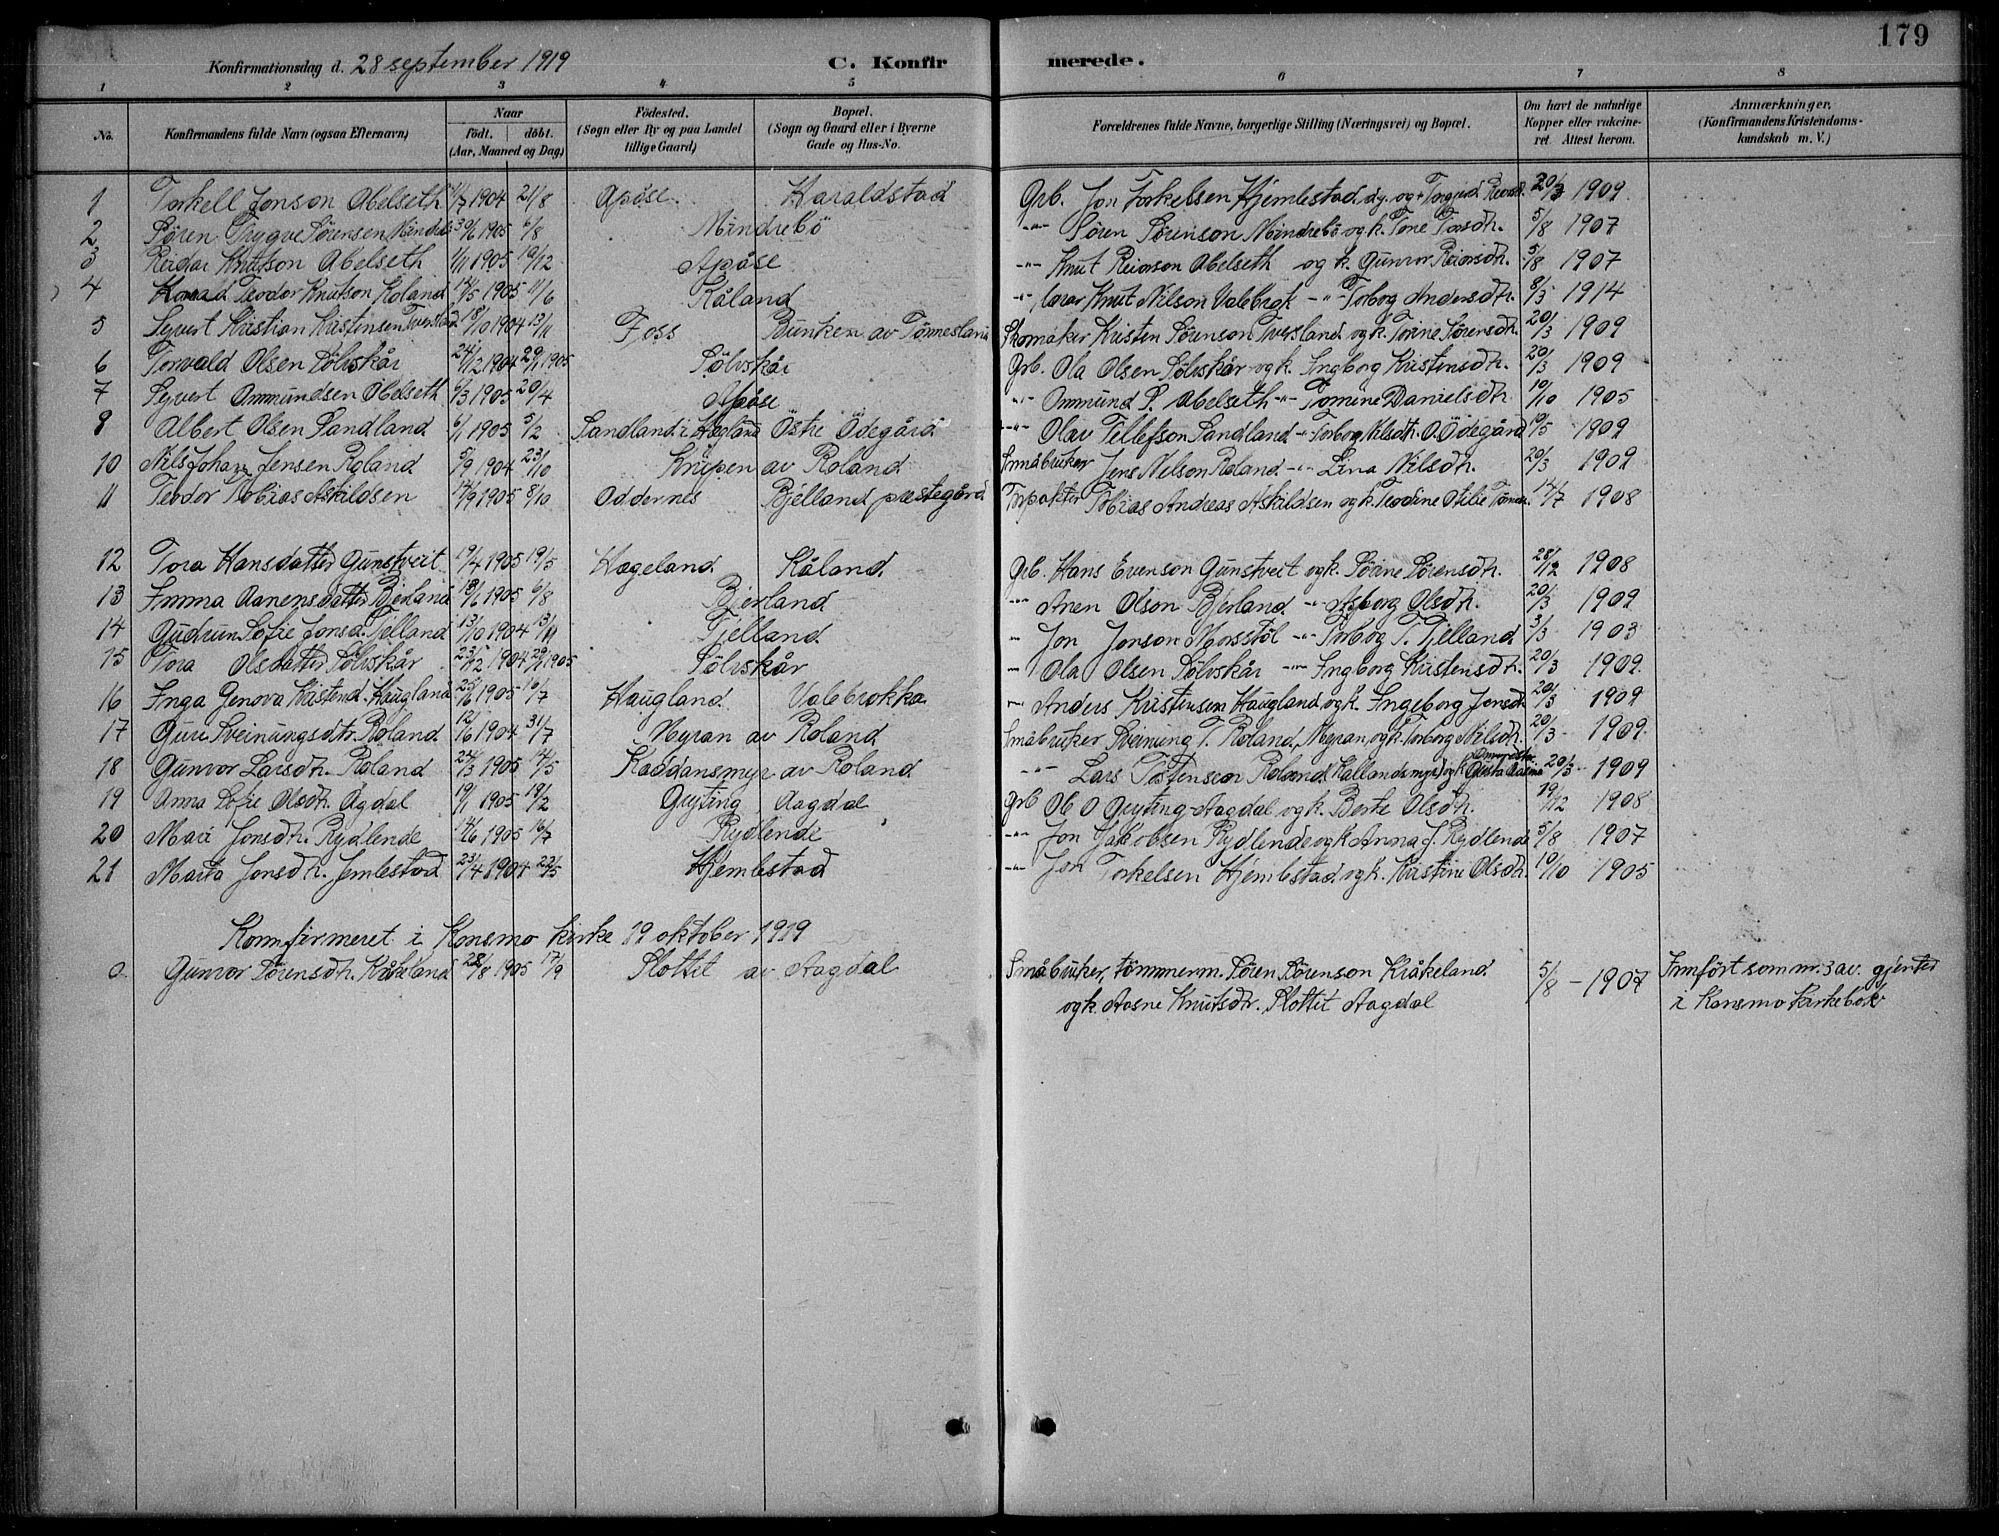 179
Konfirmationsdag d. 28 september 1919 C. Konfirmerede.
1 2 3 4 5 6 7 8
No. Konfirmandens fulde Navn (ogsaa Efternavn) Naar födt. döbt. (Aar, Maaned og Dag) Födested. (Sogn eller By og paa Landet tillige Gaard) Bopæl. (Sogn og Gaard eller i Byerne Gade og Hus-No. Forældrenes fulde Navne, borgerlige Stilling (Næringsvei) og Bopæl. Om havt de naturlige Kopper eller vakcineret. Attest herom. Anmærkninger. (Konfirmandens Kristendomskundskab m. V.)
1 Torkell Jonson Abelseth 1904 21/8 Apåse. Haraldstad Grb. Jon Torkelsen Hjemlestad og Torgerd 20/3 1909
2 Sören Trygve Sörensen 30/6 1905 6/8 Mindrebö -"- Sören Sörenson Mindrebö og k. Tone Torsdtr. 5/8 1907
3 Reidar Knutson Abelseth 1/11 1905 10/12 Apåse -"- Knut Reiarson Abelseth og k. Gunvor Reiarsdtr. 5/8 1907
4 Teodor Knutson Roland 14/5 1905 11/6 Kåland -"- lærer Knut Nilson Valebrok -"- Torborg Andersdtr. 8/5 1914
5 Syvert Kristian Kristensen 18/10 1904 13/11 Foss Bunken av Tönnesland Skomaker Kristen Sörenson Tversland og k. Torine Sörensdtr. 20/3 1909
6 Torvald Olsen Sölvskår 24/12 1904 29/1 1905 Sölvskår Grb. Ola Olsen Sölvskår og k. Ingborg Kristensdtr. 20/3 1909
7 Syvert Ommundsen Abelseth 6/3 1905 20/4 Apåse -"- Ommund S. Abelseth -"- Tomine Danielsdtr. 10/10 1905
8 Albert Olsen Sandland 6/1 1905 5/2 Sandland i Hægland Östre Ödegård -"- Olav Tellefson Sandland -"- Torborg Nilsdtr. O. Ödegård 19/5 1909
10 Nils Johan Jensen Roland 5/9 1904 23/10 Knipen av Roland Småbruker Jens Nilson Roland -"- Lina Nilsdtr. 20/3 1909
11 Teodor Tobias Askildsen 14/9 1905 8/10 Oddernes Bjelland prestegård Forpakter Tobias Andreas Askildsen og k. Teodine Otilie 14/7 1908
12 Tora Hansdatter Gunstveit 19/4 1905 19/5 Hægeland Kåland Grb. Hans Evenson Gunstveit og k. Sörine Sörensdtr. 28/12 1908
13 Emma Aanensdatter Bjerland 18/6 1905 6/8 Bjerland -"- Anen Olson Bjerland -"- Asborg Olsdtr. 20/3 1909
14 Gudrun Sofie Jonsd. Fjelland 13/10 1904 13/11 Fjelland -"- Jon Jonson Mosstöl -"- Torborg T. Fjelland 3/3 1903
15 Tora Olsdatter Sölvskår 23/12 1904 29/1 1905 Sölvskår -"- Ola Olsen Sölvskår -"- Ingborg Kristensdtr. 20/3 1909
16 Inga Genova Kristend. Haugland 25/6 1905 16/7 Haugland Valebrokka -"- Anders Kristensen Haugland og k. Ingeborg Jonsdtr. 20/3 1909
17 Guri Sveinungsdtr. Roland 12/6 1904 31/7 Myran av Roland Småbruker Sveinung T. Roland, Myran, og k. Torborg Nilsdtr. 20/3 - 1909
18 Gunvor Larsdtr. Roland 24/3 1905 14/5 Kaddansmyr av Roland -"- Lars Tostenson Roland 20/3 - 1909
19 Anna Sofie Olsdtr. Agdal 19/1 1905 19/2 Gryting Aagdal Grb Ol O Gryting - Aagdal og k. Berte Olsdtr. 19/12 1908
20 Mari Jonsdtr. Rydlende 14/6 1905 16/7 Rydlende -"- Jon Jakobsen Rydlende og k Anna J. Rydlende 5/8 1907
21 Marta Jonsdtr. Jemlestad 23/4 1904 22/5 Hjemlestad -"- Jon Torkelsen Hjemlestad og k. Kristine Olsdtr. 10/10 1905
Konnfirmeret i Konsmo kirke 19 oktober 1919
0 Gunvor Sörensdtr. Kråkeland 28/8 1905 17/9 Slottet av Aagdal Småbruker, tömmerm. Sören Sörenson Kråkeland 5/8 - 1907 Innfört som nr. 3 av gjenter
og k. Aasne Knutsdtr. Slottet Aagdal i Konsmo kirkebok